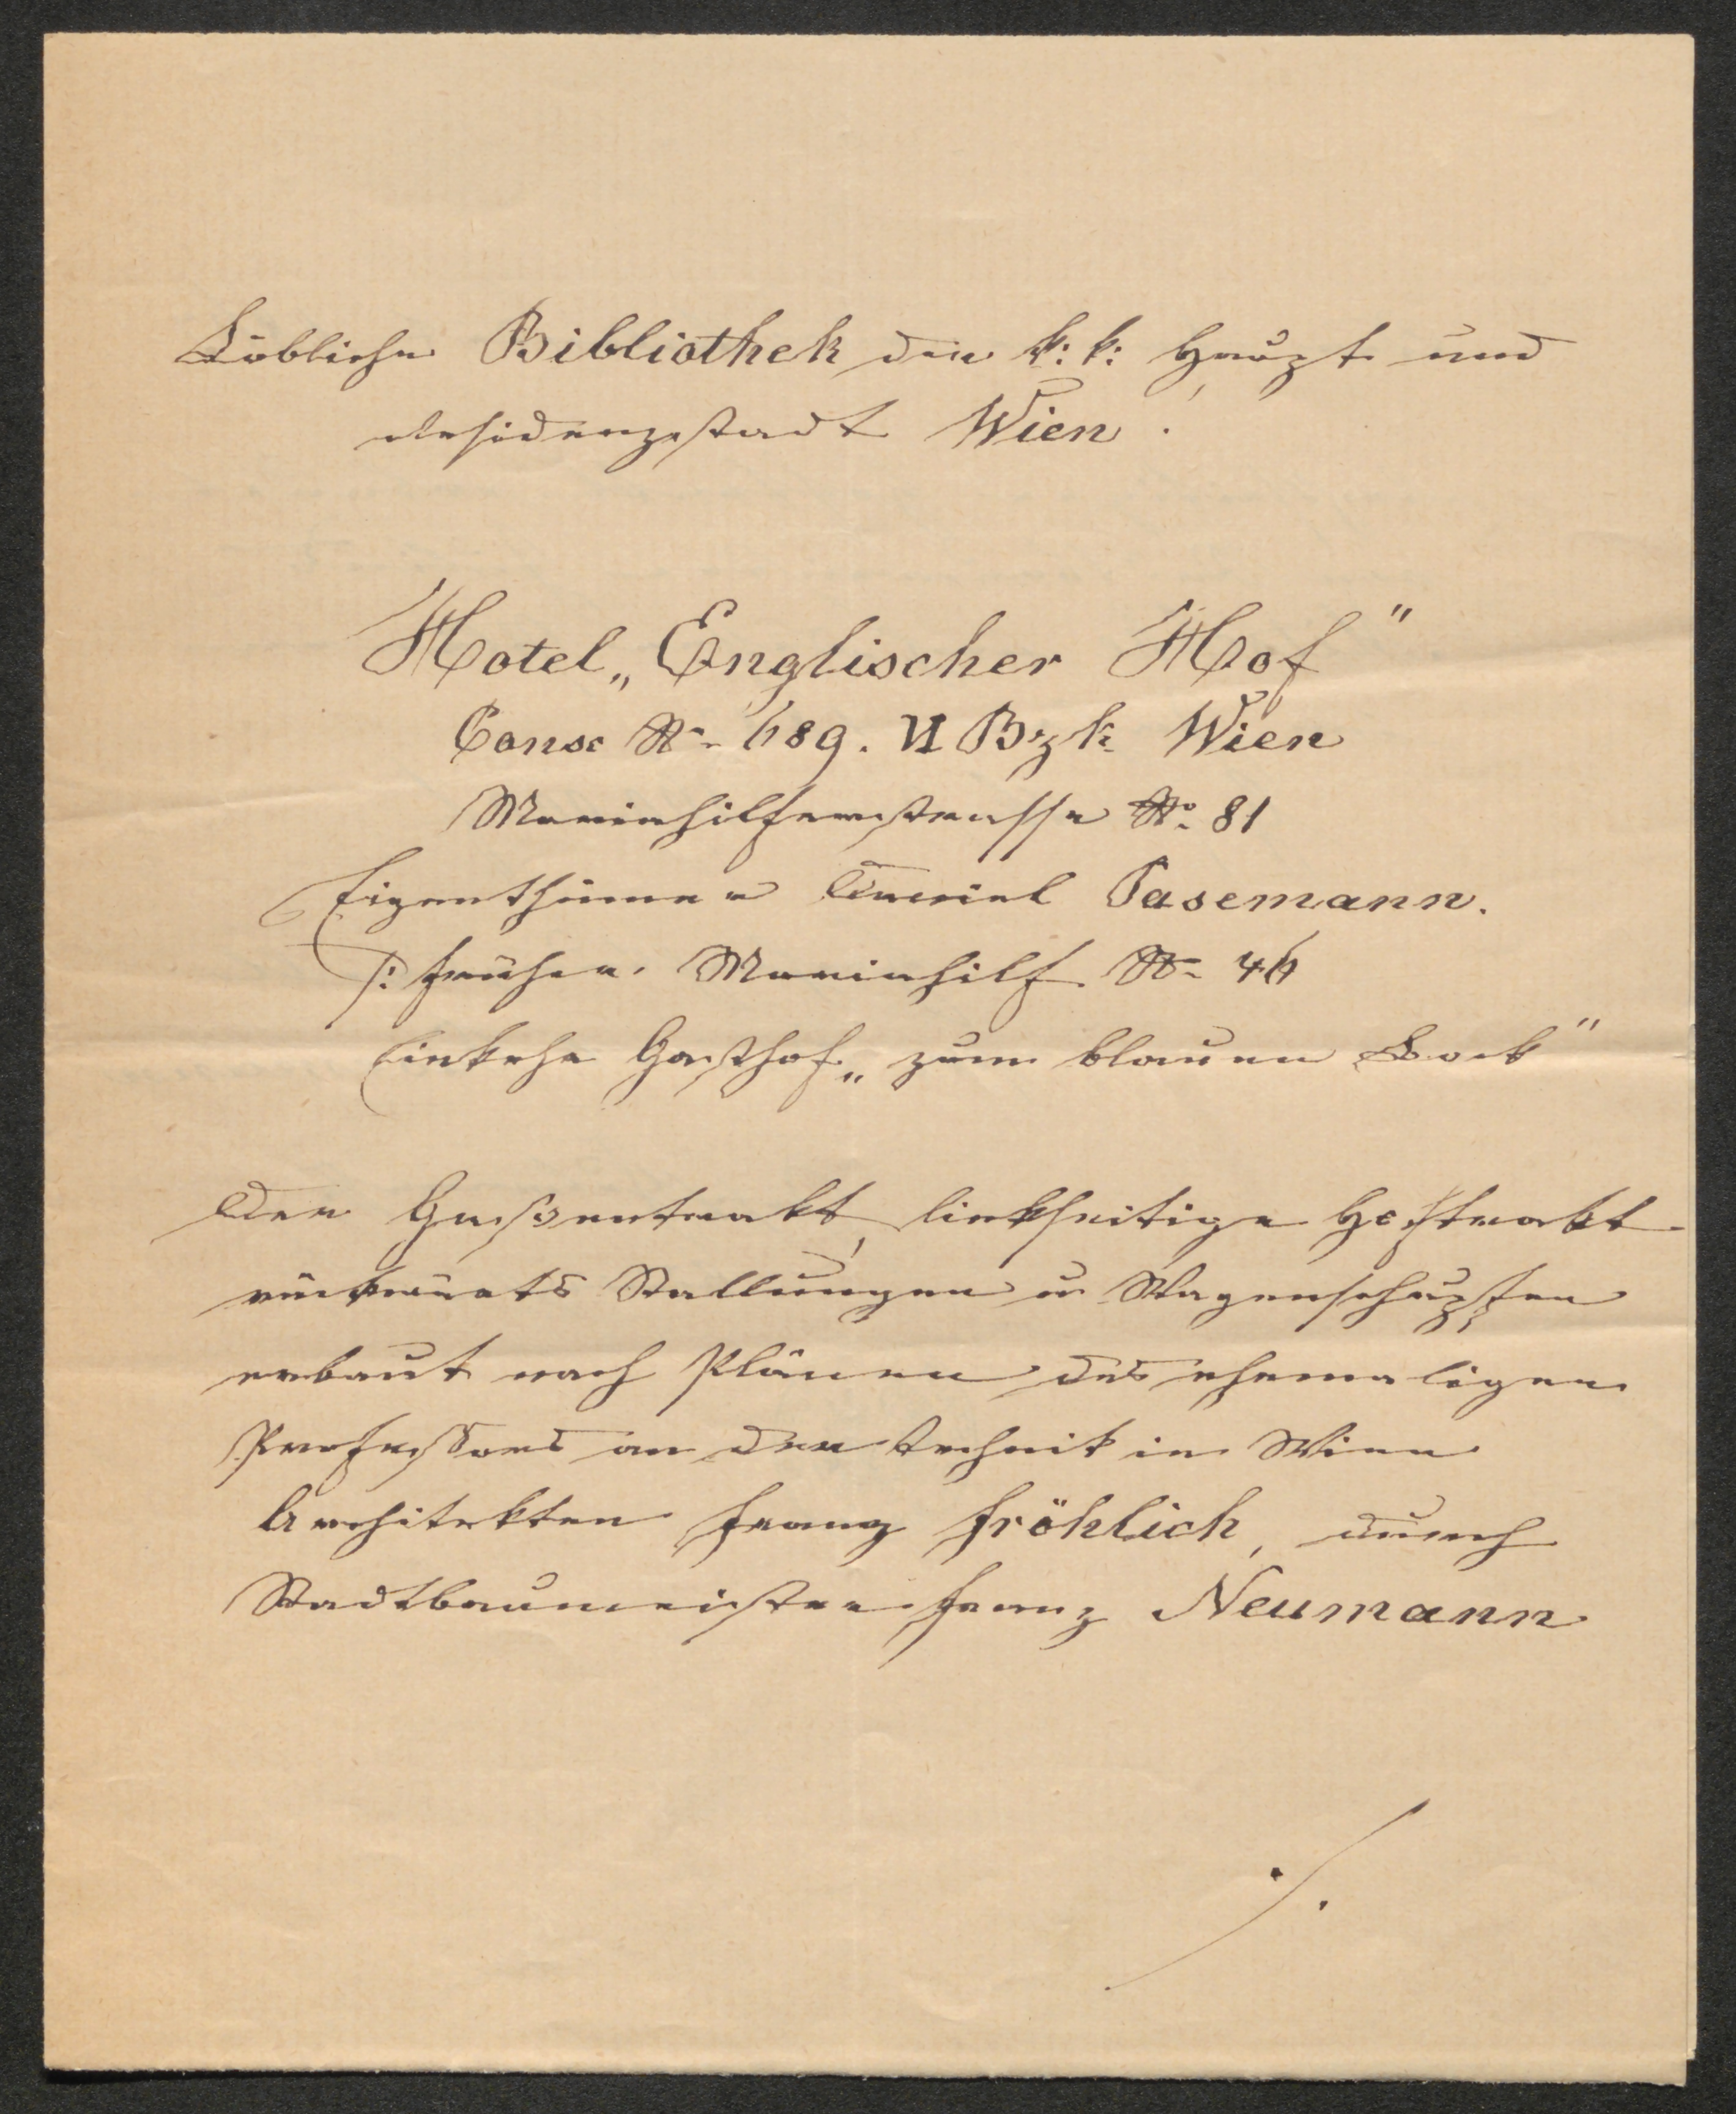 Löbliche Bibliothek der k: k: Haupt und
Residenzstadt Wien.
Hotel „Englischer Hof"
Consc No 689. VI Bzk Wien
Mariahilferstrasse No 81
Eigenthümer Daniel Pasemann.
/: früher. Mariahilf No 46
Einkehr Gasthof „zum blauen Bock"
Der Gassentrakt, linkseitige Hoftrakt
rückwärts Stallungen u Wagenschupfen
erbaut nach Plänen des ehemaligen
Professors an der Technik in Wien
Architekten Franz Fröhlich, durch
Stadtbaumeister Franz Neumann
./.